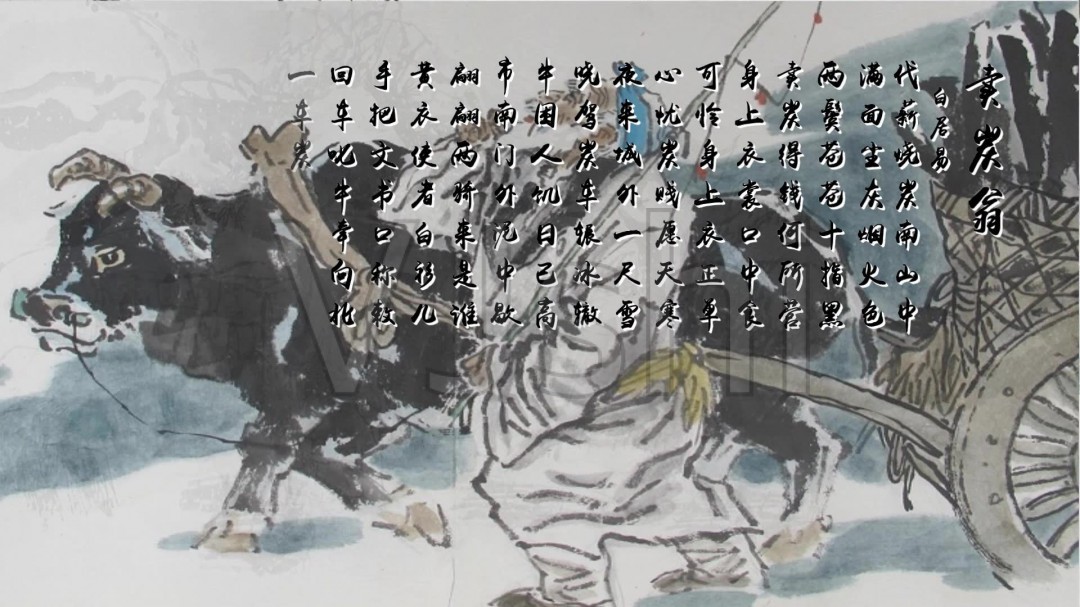 卖炭翁
白居易
代薪烧炭南山中
满面尘灰烟火色
两鬓苍苍十指黑
卖炭得钱何所营
身上衣裳口中食
可怜身上衣正单
心忧炭贱愿天寒
夜来城外一尺雪
晓驾炭车辗冰辙
牛困人饥日已高
市南门外泥中歇
翩翩两骑来是谁
黄衣使者白衫儿
手把文书口称敕
回车叱牛牵向北
一车炭